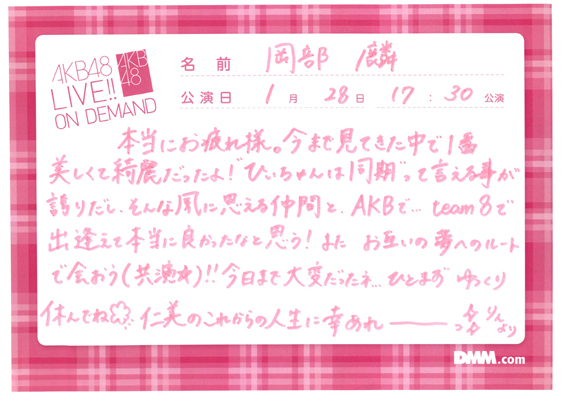 AKB48
LIVE!!
ON DEMAND
AKB
48
名 前 岡部 麟
公演日 1月 28日 17:30 公演
本当にお疲れ様。今まで見てきた中で1番
美しくて綺麗だったよ!"ひぃちゃんは同期"って言える事が
誇りだし、そんな風に思える仲間と、AKBで… team8で
出逢えて本当に良かったなと思う! また お互いの夢へのルート
で会おう(共演も)!! 今日まで大変だったネ… ひとまず ゆっくり
休んでね 仁美のこれからの人生に幸あれ
りん
より
DMM.com